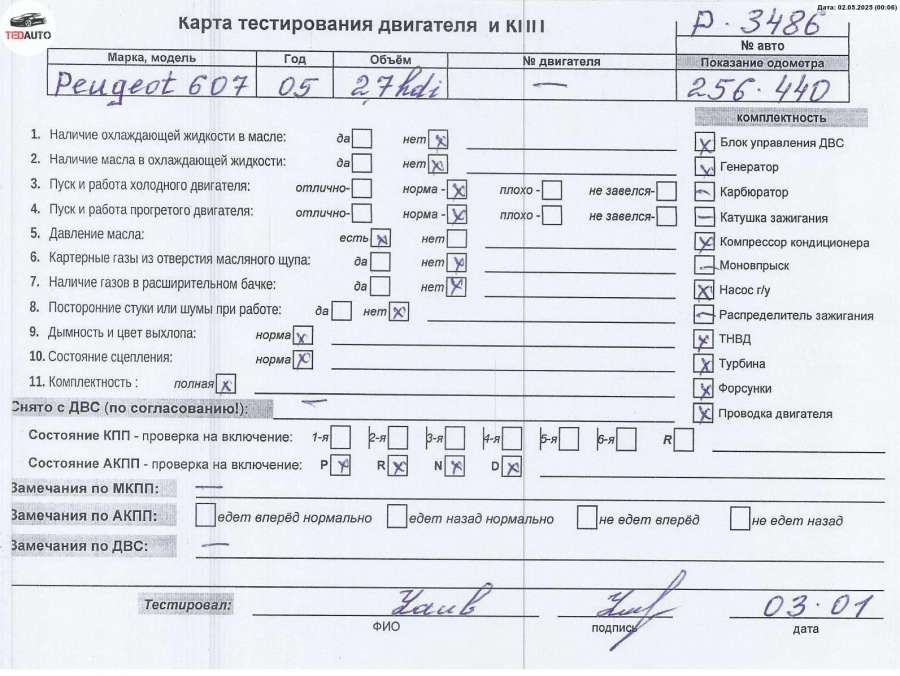 Дата: 02.05.2025 (00:06)
TEDAUTO
Карта тестирования двигателя и КПП
P. 3486
№ авто
Марка, модель Год Объём № двигателя Показание одометра
Peugeot 607 05 2,7hdi — 256.440
комплектность
1. Наличие охлаждающей жидкости в масле: да нет x
x Блок управления ДВС
2. Наличие масла в охлаждающей жидкости: да нет x
x Генератор
3. Пуск и работа холодного двигателя: отлично- норма - x плохо - не завелся-
— Карбюратор
4. Пуск и работа прогретого двигателя: отлично- норма - x плохо - не завелся-
— Катушка зажигания
5. Давление масла: есть x нет
x Компрессор кондиционера
6. Картерные газы из отверстия масляного щупа: да нет x
— Моновпрыск
7. Наличие газов в расширительном бачке: да нет x
x Насос г/у
8. Посторонние стуки или шумы при работе: да нет x
— Распределитель зажигания
9. Дымность и цвет выхлопа: норма x
x ТНВД
10. Состояние сцепления: норма x
x Турбина
11. Комплектность : полная x
x Форсунки
Снято с ДВС (по согласованию!): —
x Проводка двигателя
Состояние КПП - проверка на включение: 1-я 2-я 3-я 4-я 5-я 6-я R
Состояние АКПП - проверка на включение: P x R x N x D x
Замечания по МКПП: —
Замечания по АКПП: едет вперёд нормально едет назад нормально не едет вперёд не едет назад
Замечания по ДВС: —
Тестировал: 03.01
ФИО подпись дата